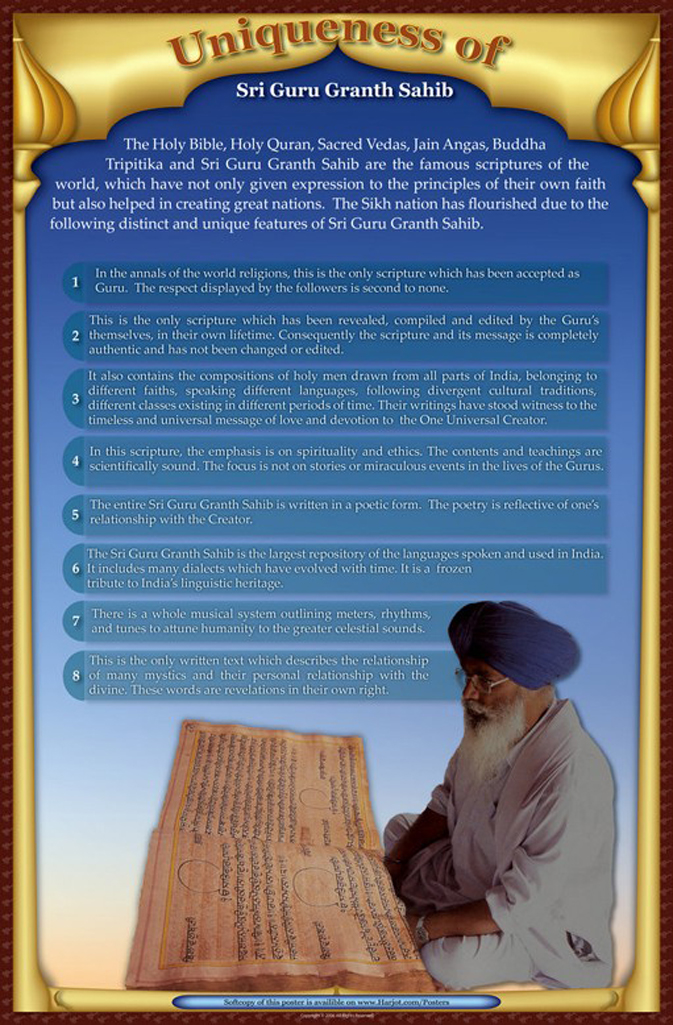 Uniqueness of
Sri Guru Granth Sahib
The Holy Bible, Holy Quran, Sacred Vedas, Jain Angas, Buddha
Tripitika and Sri Guru Granth Sahib are the famous scriptures of the
world, which have not only given expression to the principles of their own faith
but also helped in creating great nations. The Sikh nation has flourished due to the
following distinct and unique features of Sri Guru Granth Sahib.
1 In the annals of the world religions, this is the only scripture which has been accepted as
Guru. The respect displayed by the followers is second to none.
This is the only scripture which has been revealed, compiled and edited by the Guru's
2 themselves, in their own lifetime. Consequently the scripture and its message is completely
authentic and has not been changed or edited.
It also contains the compositions of holy men drawn from all parts of India, belonging to
different faiths, speaking different languages, following divergent cultural traditions,
3 different classes existing in different periods of time. Their writings have stood witness to the
timeless and universal message of love and devotion to the One Universal Creator.
4 In this scripture, the emphasis is on spirituality and ethics. The contents and teachings are
scientifically sound. The focus is not on stories or miraculous events in the lives of the Gurus.
5 The entire Sri Guru Granth Sahib is written in a poetic form. The poetry is reflective of one's
relationship with the Creator.
The Sri Guru Granth Sahib is the largest repository of the languages spoken and used in India.
6 It includes many dialects which have evolved with time. It is a frozen
tribute to India's linguistic heritage.
7 There is a whole musical system outlining meters, rhythms,
and tunes to attune humanity to the greater celestial sounds.
This is the only written text which describes the relationship
8 of many mystics and their personal relationship with the
divine. These words are revelations in their own right.
Softcopy of this poster is availible on www.Harjot.com/Posters
Copyright © 2006 All Rights Reserved